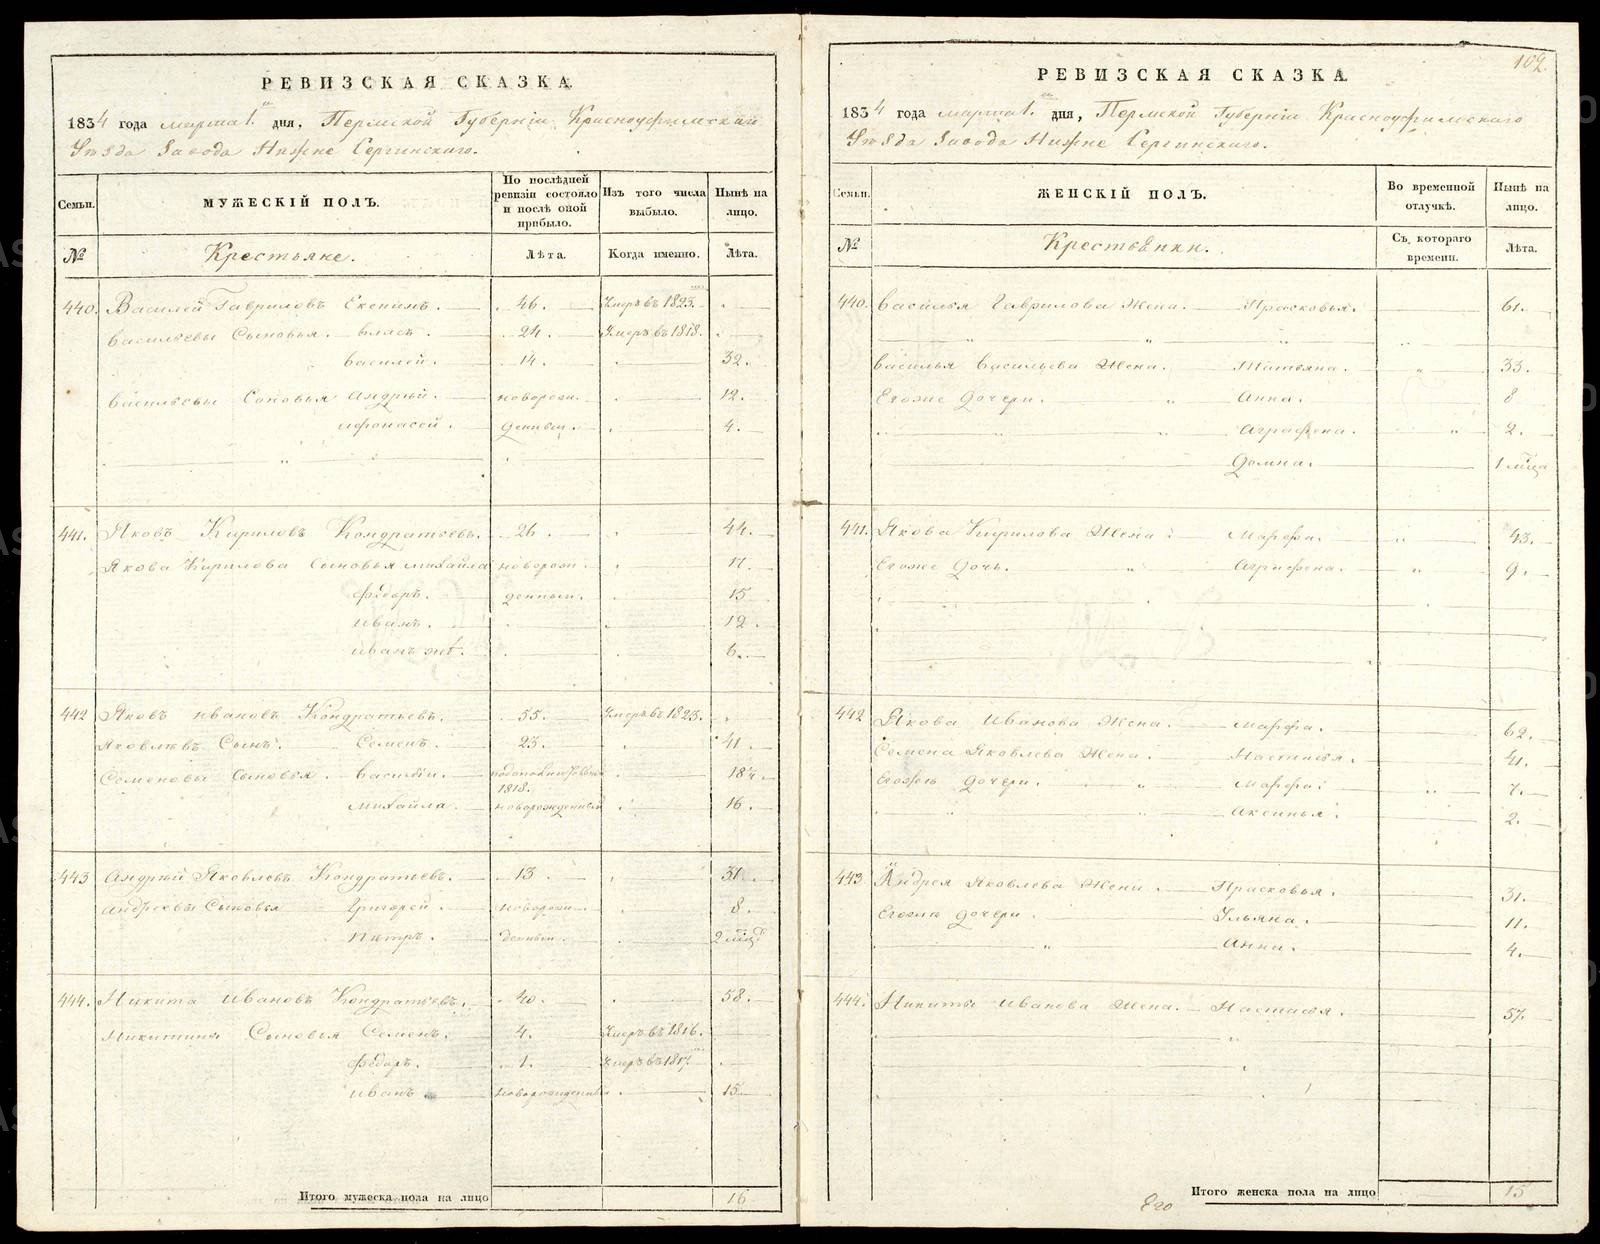 РЕВИЗСКАЯ СКАЗКА
1834 года марта 1го дня, Пермской Губерніи Красноуфимскаго
Уѣзда Завода Нижне Сергинскаго.
Семьи.
МУЖЕСКІЙ ПОЛЪ.
По послѣдней ревизіи состояло и послѣ оной прибыло.
Изъ того числа выбыло.
Нынѣ на лицо.
№
Крестьяне.
Лѣта.
Когда именно.
Лѣта.
440. Василей Гавриловъ Екенинъ. 46. Умеръ въ 1825.
Васильевы Сыновья. Власъ. 24. Умеръ въ 1818.
Василей. 14. 32.
Васильевы Сыновья Андрѣй. новорож- 12.
Афонасей. денные. 4.
441. Яковъ Кириловъ Кондратьевъ. 26. 44.
Якова Кирилова Сыновья Михайла новорож- 17.
Федоръ. денные. 15
Иванъ. 12.
Иванъ же. 6.
442 Яковъ Ивановъ Кондратьевъ. 55. Умеръ въ 1823.
Яковлевъ Сынъ. Семенъ. 23. 41.
Семеновы Сыновья. Василiи. 1818. 18½.
Михайла. новорожденный 16.
443 Андрѣй Яковлевъ Кондратьевъ. 13. 31.
Андреевы Сыновья Григорей. новорож- 8.
Петръ. денные. 2 мѣсяц
444. Никита Ивановъ Кондратьевъ. 40. 58.
Никитины Сыновья Семенъ. 4. Умеръ въ 1816.
Федоръ. 1. Умеръ въ 1817.
Иванъ. новорожденный 15.
Итого мужеска пола на лицо 16
102.
РЕВИЗСКАЯ СКАЗКА
1834 года марта 1го дня, Пермской Губерніи Красноуфимскаго
Уѣзда Завода Нижне Сергинскаго.
Семьи.
ЖЕНСКІЙ ПОЛЪ.
Во временной отлучкѣ.
Нынѣ на лицо.
№
Крестьянки.
Съ котораго времени.
Лѣта.
440. Василья Гаврилова Жена. Прасковья. 61.
Василья Васильева Жена. Татьяна. 33.
Егоже Дочери. Анна. 8
Аграфена. 2.
Домна. 1 мѣсяца
441. Якова Кирилова Жена. Марфа. 43.
Егоже Дочь. Аграфена. 9.
442 Якова Иванова Жена. Марфа. 62.
Семена Яковлева Жена. Настасья. 41.
Егожъ Дочери. Марфа. 7.
Аксинья. 2.
443 Андрея Яковлева Жена. Прасковья. 31.
Егожъ Дочери. Ульяна. 11.
Анна. 4.
444. Никиты Иванова Жена. Настасья. 57.
Итого женска пола на лицо 15
Его